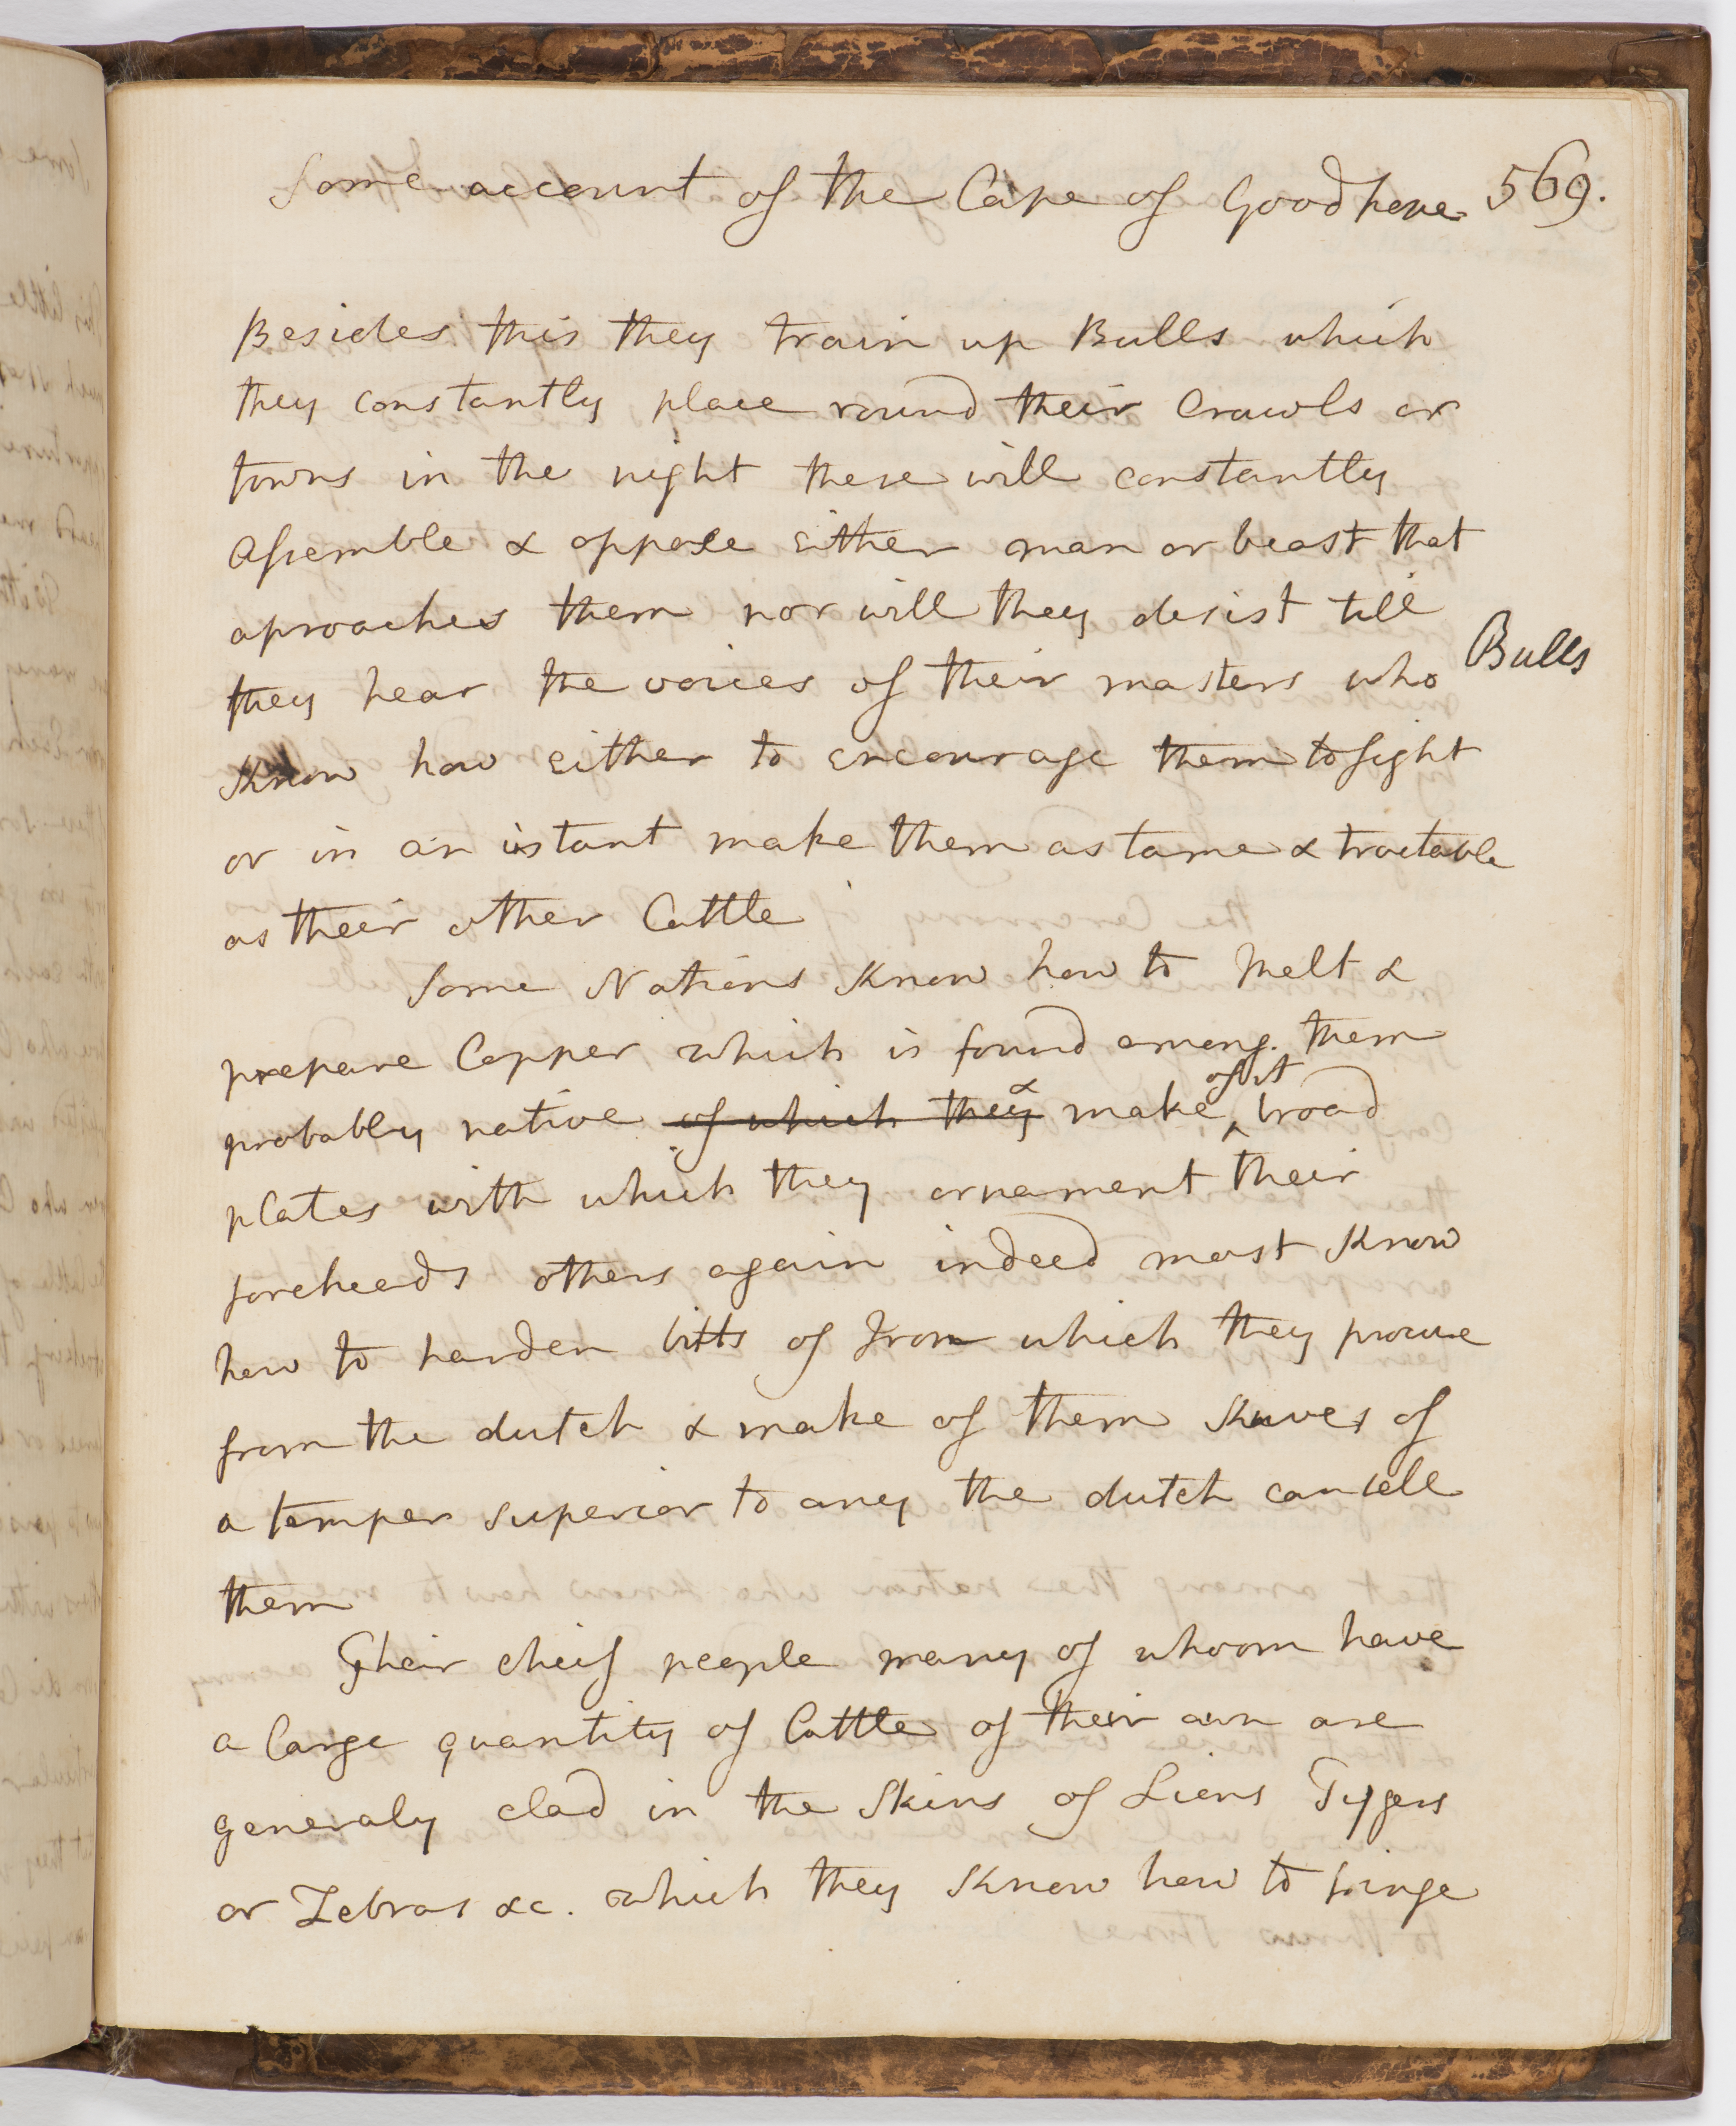 Some account of the Cape of Good hope 569.
Besides this they train up Bulls which
they constantly place round their Crawls or
towns in the night these will constantly
assemble & oppose either man or beast that
aproaches them nor will they desist till
they hear the voices of their masters who
Bulls
Know how either to encourage them to fight
or in an istant make them as tame & tractable
as their other Cattle
Some Nations Know how to melt &
prepare Copper which is found among them
probably native of which they & make of it broad
plates with which they ornament their
foreheads others again indeed most Know
how to harden bitts of Iron which they procure
from the dutch & make of them Knives of
a temper superior to any the dutch can sell
them
Their cheif people many of whoom have
a large quantity of Cattle of their own are
generaly clad in the Skins of Lions Tygers
or Zebras &c. which they Know how to fringe